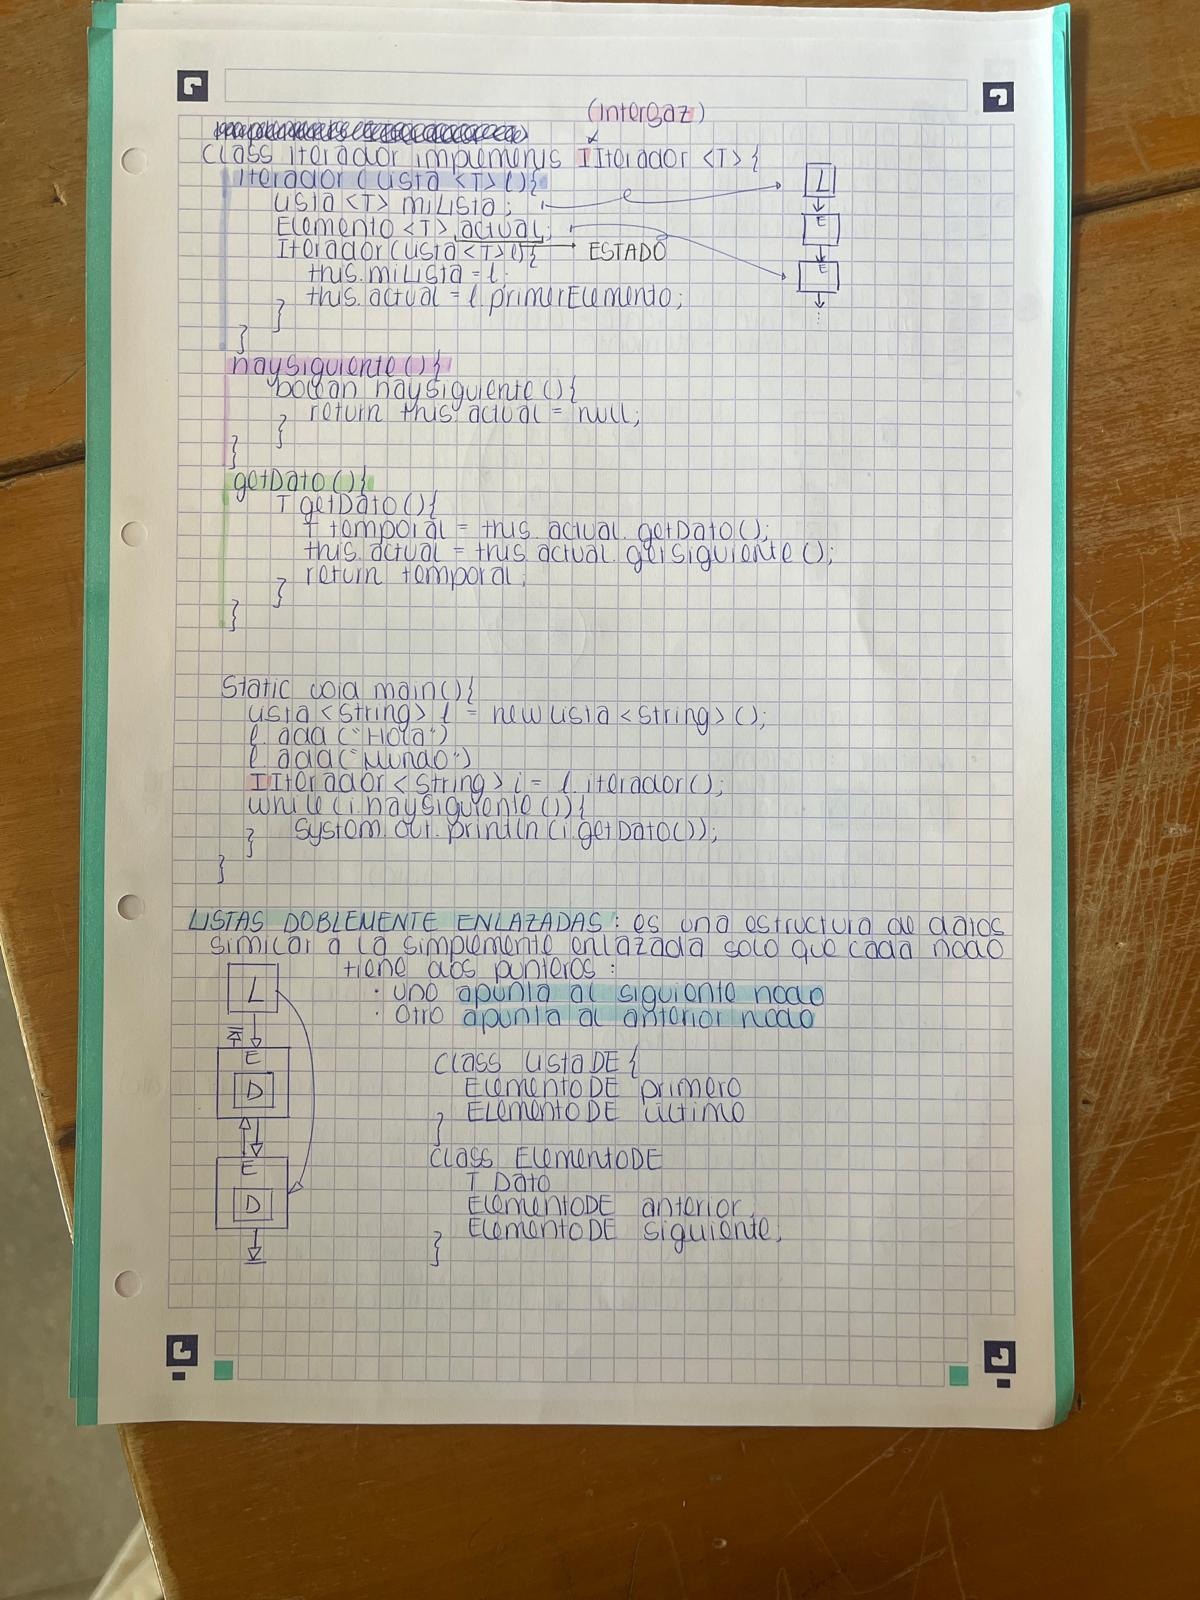 (Intergaz)
Class iterador implements IIterador <T> {
iterador (Lista <T> l){
Lista <T> miLista;
Elemento <T> actual;
Iterador (Lista <T> l){ ESTADO
this.miLista = l.
this.actual = l.primerElemento;
}
}
haySiguiente(){
bolean haySiguiente(){
return this.actual = null;
}
}
getDato(){
T getDato(){
T temporal = this.actual.getDato();
this.actual = this.actual.getSiguiente();
return temporal;
}
}
Static void main(){
Lista <String> l = new Lista <String> ();
l.add ("Hola")
l.add ("Mundo")
IIterador <String> i = l.iterador();
while (i.haySiguiente()){
System.out.println (i.getDato());
}
}
LISTAS DOBLEMENTE ENLAZADAS: es una estructura de datos
similar a la simplemente enlazada solo que cada nodo
tiene dos punteros:
· uno apunta al siguiente nodo
· otro apunta al anterior nodo
Class ListaDE {
ElementoDE primero
ElementoDE último
}
Class ElementoDE
T Dato
ElementoDE anterior,
ElementoDE siguiente,
}
L
E
E
L
E
D
E
D